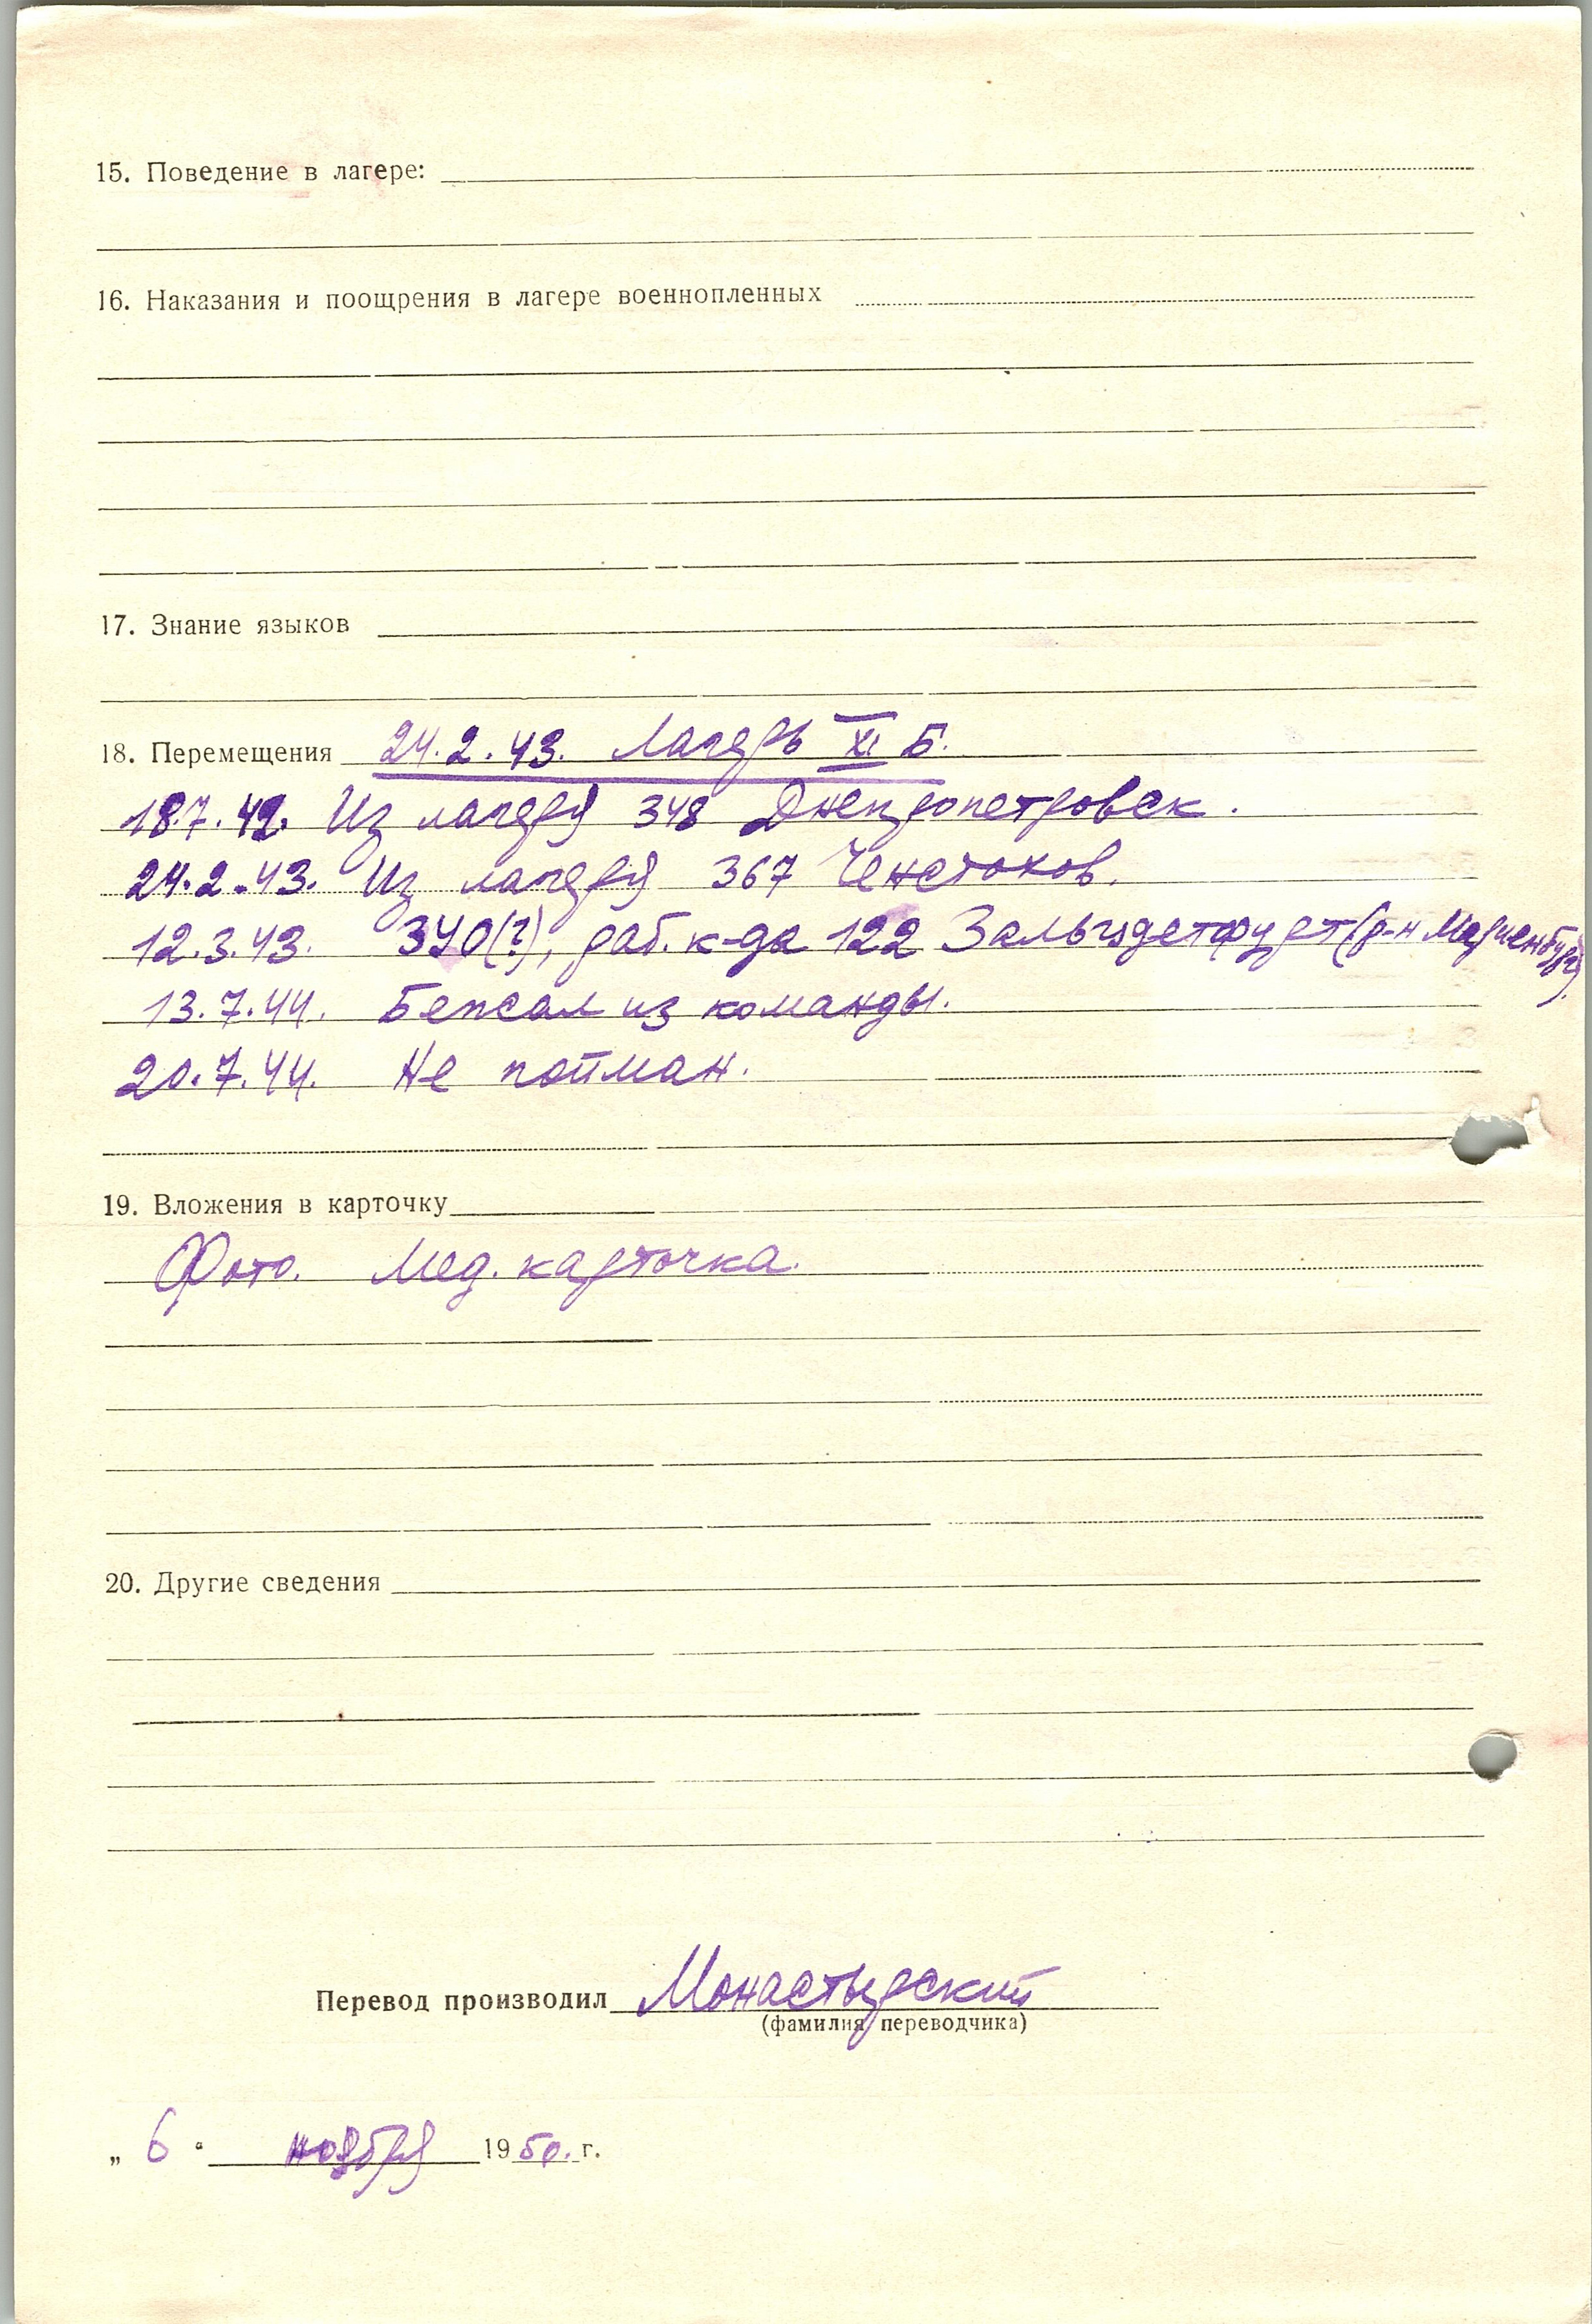 15. Поведение в лагере:
16. Наказания и поощрения в лагере военнопленных
17. Знание языков
18. Перемещения 24.2.43. Лагерь XI Б.
18.7.42. Из лагеря 348 Днепропетровск.
24.2.43. Из лагеря 367 Ченстохов.
12.3.43. 340(?), раб. к-да 122 Зальцдетфурт (р-н Мариенбург).
13.7.44. Бежал из команды.
20.7.44. Не пойман.
19. Вложения в карточку
Фото. Мед. карточка.
20. Другие сведения
Перевод производил Монастырский
(фамилия переводчика)
„ 6 “ ноября 1950. г.